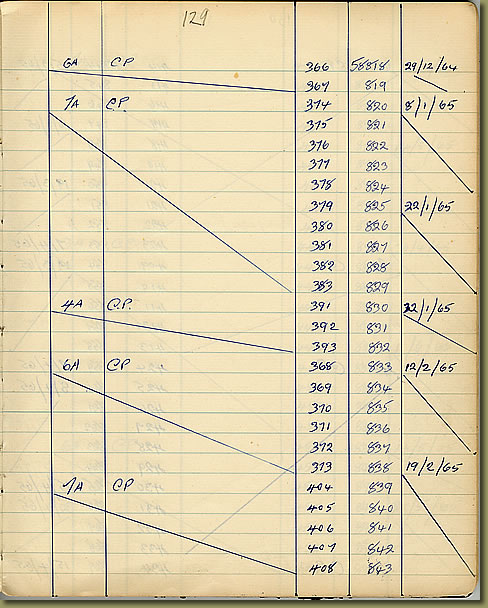 129
6A C.P 366 58818 29/12/64
367 819
7A C.P. 374 820 8/1/65
375 821
376 822
377 823
378 824
379 825 22/1/65
380 826
381 827
382 828
383 829
4A C.P. 391 830 22/1/65
392 831
393 832
6A C.P 368 833 12/2/65
369 834
370 835
371 836
372 837
373 838 19/2/65
7A C.P 404 839
405 840
406 841
407 842
408 843